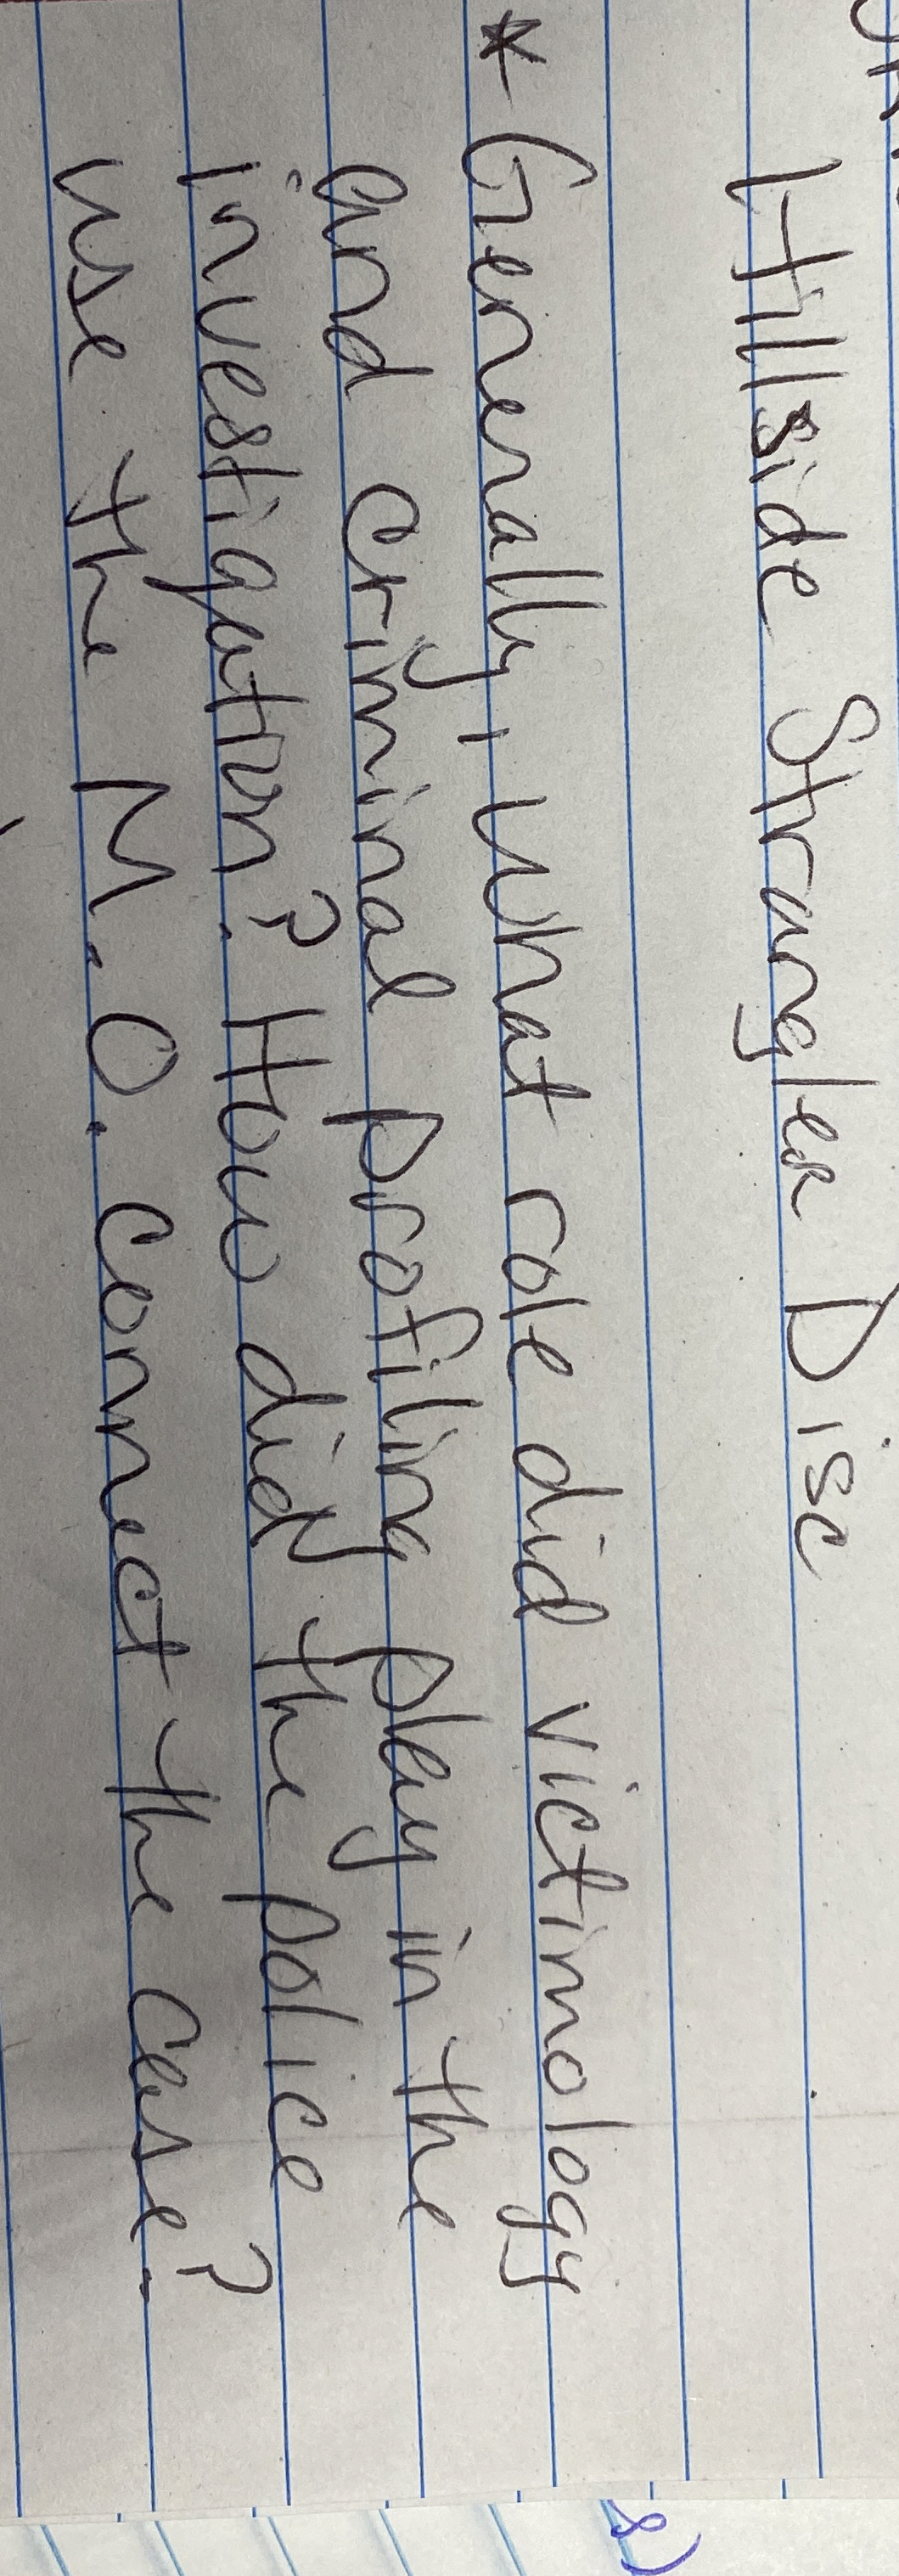 Hillside Strangler Disc
* Generally, what role did victimology
and criminal profiling play in the
investigation? How did the police
use the M.O. connect the case?
8)